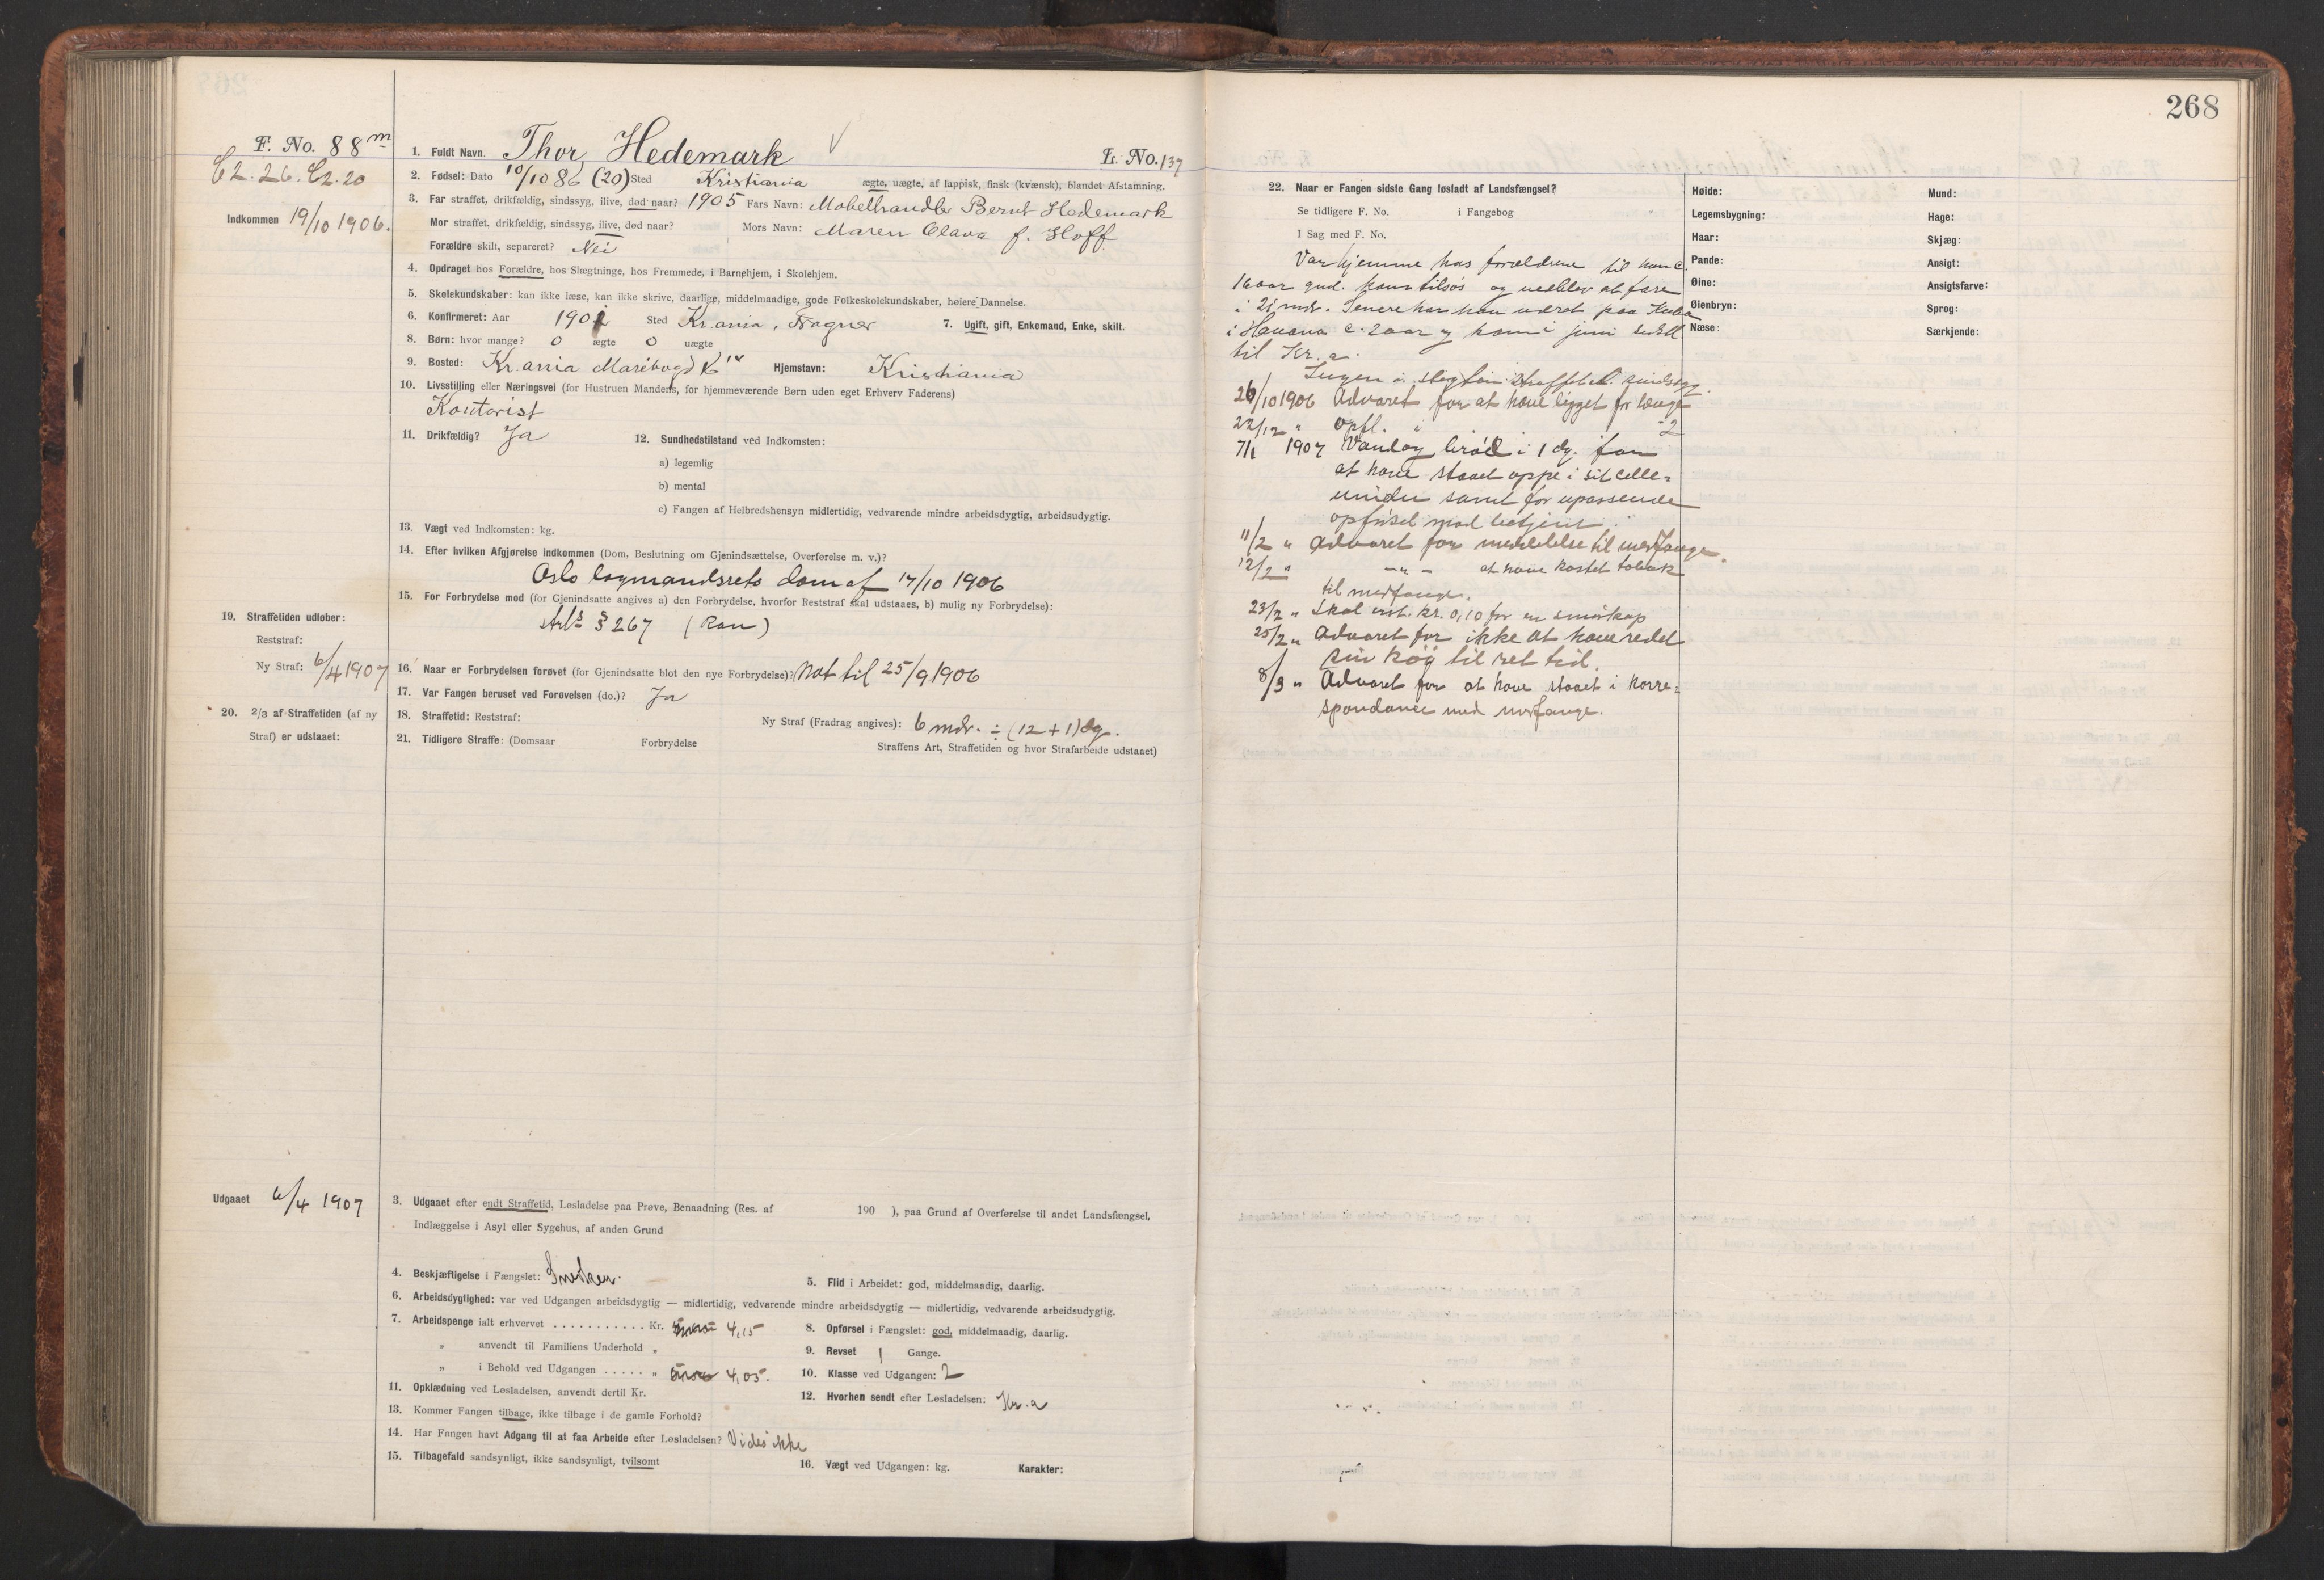 268
F. No. 88 m
C2.26. C2.20
Indkommen 19/10 1906.
1. Fuldt Navn. Thor Hedemark V
L. No. 137
2. Fødsel: Dato 10/10 86 (20) Sted Kristiania ægte, uægte, af lappisk, finsk (kvænsk), blandet Afstamning.
3. Far straffet, drikfældig, sindssyg, ilive, død naar? 1905 Fars Navn: Møbelhandler Bernt Hedemark
Mor straffet, drikfældig, sindssyg, ilive, død naar? Mors Navn: Maren Olava f. Hoff
Forældre skilt, separeret? Nei
4. Opdraget hos Forældre, hos Slægtninge, hos Fremmede, i Barnehjem, i Skolehjem.
5. Skolekundskaber: kan ikke læse, kan ikke skrive, daarlige, middelmaadige, gode Folkeskolekundskaber, høiere Dannelse.
6. Konfirmeret: Aar 1901 Sted Kr.ania, Fragner 7. Ugift, gift, Enkemand, Enke, skilt.
8. Børn: hvor mange? 0 ægte 0 uægte
9. Bosted: Kr.ania Maribogd Hjemstavn: Kristiania
10. Livsstilling eller Næringsvei (for Hustruen Mandens, for hjemmeværende Børn uden eget Erhverv Faderens)
Kontorist
11. Drikfældig? Ja 12. Sundhedstilstand ved Indkomsten:
a) legemlig
b) mental
c) Fangen af Helbredshensyn midlertidig, vedvarende mindre arbeidsdygtig, arbeidsudygtig.
13. Vægt ved Indkomsten: kg.
14. Efter hvilken Afgjørelse indkommen (Dom, Beslutning om Gjenindsættelse, Overførelse m. v.)?
Oslo lagmandsrets dom af 17/10 1906
15. For Forbrydelse mod (for Gjenindsatte angives a) den Forbrydelse, hvorfor Reststraf skal udstaaes, b) mulig ny Forbrydelse):
Strl's § 267 (Ran)
19. Straffetiden udløber:
Reststraf:
Ny Straf: 6/4 1907
16. Naar er Forbrydelsen forøvet (for Gjenindsatte blot den nye Forbrydelse)? Nat til 25/9 1906
17. Var Fangen beruset ved Forøvelsen (do.)? Ja
20. 2/3 af Straffetiden (af ny
Straf) er udstaaet:
18. Straffetid: Reststraf: Ny Straf (Fradrag angives): 6 mdr. ÷ (12 + 1) dg.
21. Tidligere Straffe: (Domsaar Forbrydelse Straffens Art, Straffetiden og hvor Strafarbeide udstaaet)
Udgaaet 6/4 1907
3. Udgaaet efter endt Straffetid, Løsladelse paa Prøve, Benaadning (Res. af 190 ), paa Grund af Overførelse til andet Landsfængsel,
Indlæggelse i Asyl eller Sygehus, af anden Grund
4. Beskjæftigelse i Fængslet: Snedker. 5. Flid i Arbeidet: god, middelmaadig, daarlig.
6. Arbeidsdygtighed: var ved Udgangen arbeidsdygtig — midlertidig, vedvarende mindre arbeidsdygtig — midlertidig, vedvarende arbeidsudygtig.
7. Arbeidspenge ialt erhvervet . . . . . . . . . . . Kr. 4,15 8. Opførsel i Fængslet: god, middelmaadig, daarlig.
" anvendt til Familiens Underhold " 9. Revset 1 Gange.
" i Behold ved Udgangen . . . . . " 4,05. 10. Klasse ved Udgangen: 2
11. Opklædning ved Løsladelsen, anvendt dertil Kr. 12. Hvorhen sendt efter Løsladelsen: Kr.a
13. Kommer Fangen tilbage, ikke tilbage i de gamle Forhold?
14. Har Fangen havt Adgang til at faa Arbeide efter Løsladelsen? Vides ikke
15. Tilbagefald sandsynligt, ikke sandsynligt, tvilsomt 16. Vægt ved Udgangen: kg. Karakter:
22. Naar er Fangen sidste Gang løsladt af Landsfængsel?
Se tidligere F. No. i Fangebog
I Sag med F. No.
Var hjemme hos forældrene til han c.
16 aar gml. kom tilsjøs og vedblev at fare
i 21 mdr. Senere har han været paa Kuba
i Havana c. 2 aar og kom i juni
til Kr.a.
Ingen i slegten straffet el. sindssyg.
26/10 1906 Advaret for at have ligget for længe
22/12 " opfl. " 2
7/1 1907 Vand og brød i 1 dg. for
at have staaet oppe i sit celle-
vindu samt for upassende
opførsel mod betjent.
11/2 " Advaret for meddelelse til medfange.
12/2 " — " — at have kastet tobak
til medfange.
23/2 " Skal erst. kr. 0,10 for en smørkop
25/2 " Advaret for ikke at have redet
sin køi til ret tid.
8/3 " Advaret for at have staaet i korre-
spondance med medfange.
Høide: Mund:
Legemsbygning: Hage:
Haar: Skjæg:
Pande: Ansigt:
Øine: Ansigtsfarve:
Øienbryn: Sprog:
Næse: Særkjende: